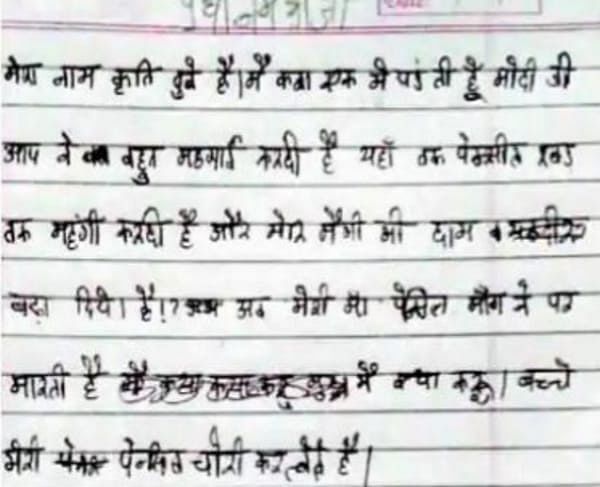 प्रधानमंत्री जी
मेरा नाम कृति दुबे है। मै कक्षा एक मे पड ती हूँ मोदी जी
आप ने बहुत महगाई करदी है यहाँ तक पेनसील रबड
तक महंगी करदी है और मेरि मैगी की दाम
बढ़ा दिये। है!? अब मेरी माँ पेंसिल माँग ने पर
मारती है मै क्या करू। बच्चे
मेरी पेनसिल चोरी कर लेते है।